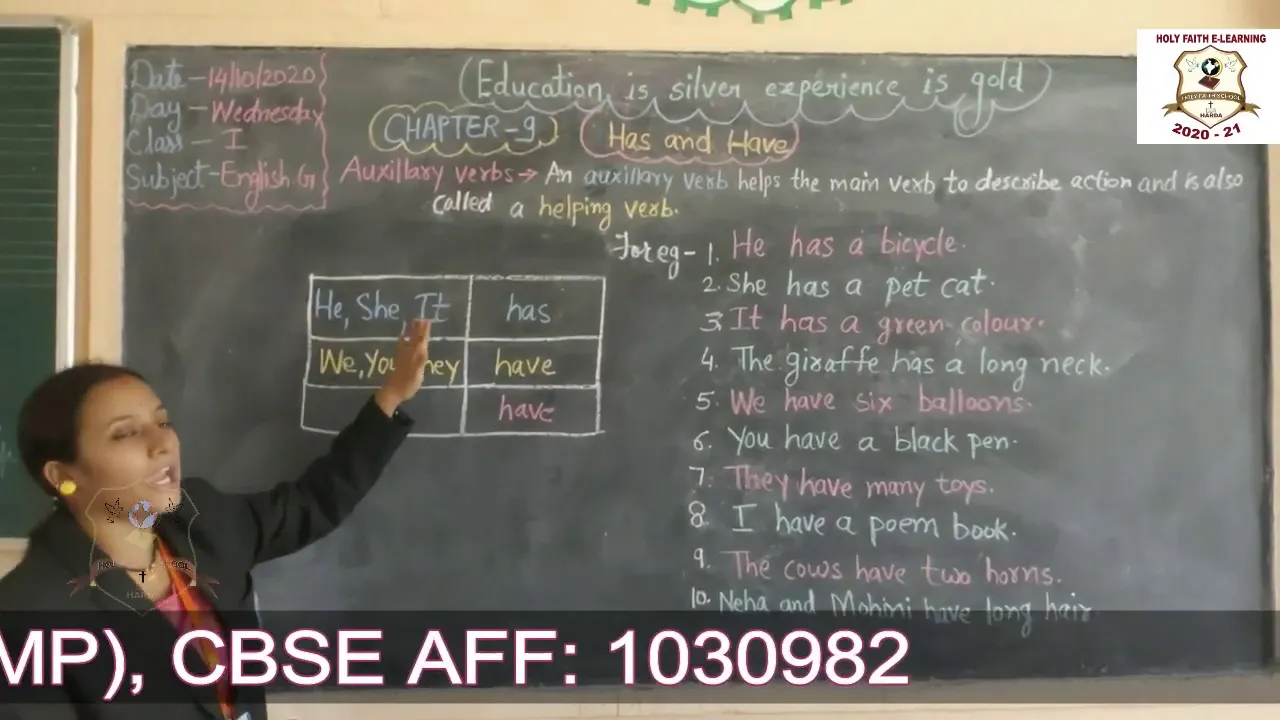 HOLY FAITH E-LEARNING
HOLY FAITH SCHOOL
HARDA
2020 - 21
Date - 14/10/2020
Day - Wednesday
Class - I
Subject - English G
(Education is silver experience is gold)
CHAPTER - 9
Has and Have
Auxillary verbs → An auxillary verb helps the main verb to describe action and is also
called a helping verb.
He, She, It has
We, You, hey have
have
For eg - 1. He has a bicycle.
2. She has a pet cat.
3. It has a green colour.
4. The giraffe has a long neck.
5. We have six balloons.
6. You have a black pen.
7. They have many toys.
8. I have a poem book.
9. The cows have two horns.
10. Neha and Mohini have long hair
MP), CBSE AFF: 1030982